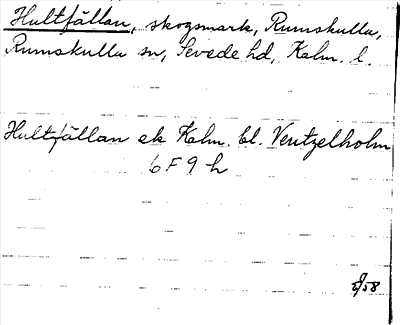 Hultfällan, skogsmark, Rumskulla,
Rumskulla sn, Sevede hd, Kalm. l.
Hultfällan ek Kalm. bl. Ventzelholm
6 F 9 h
/58